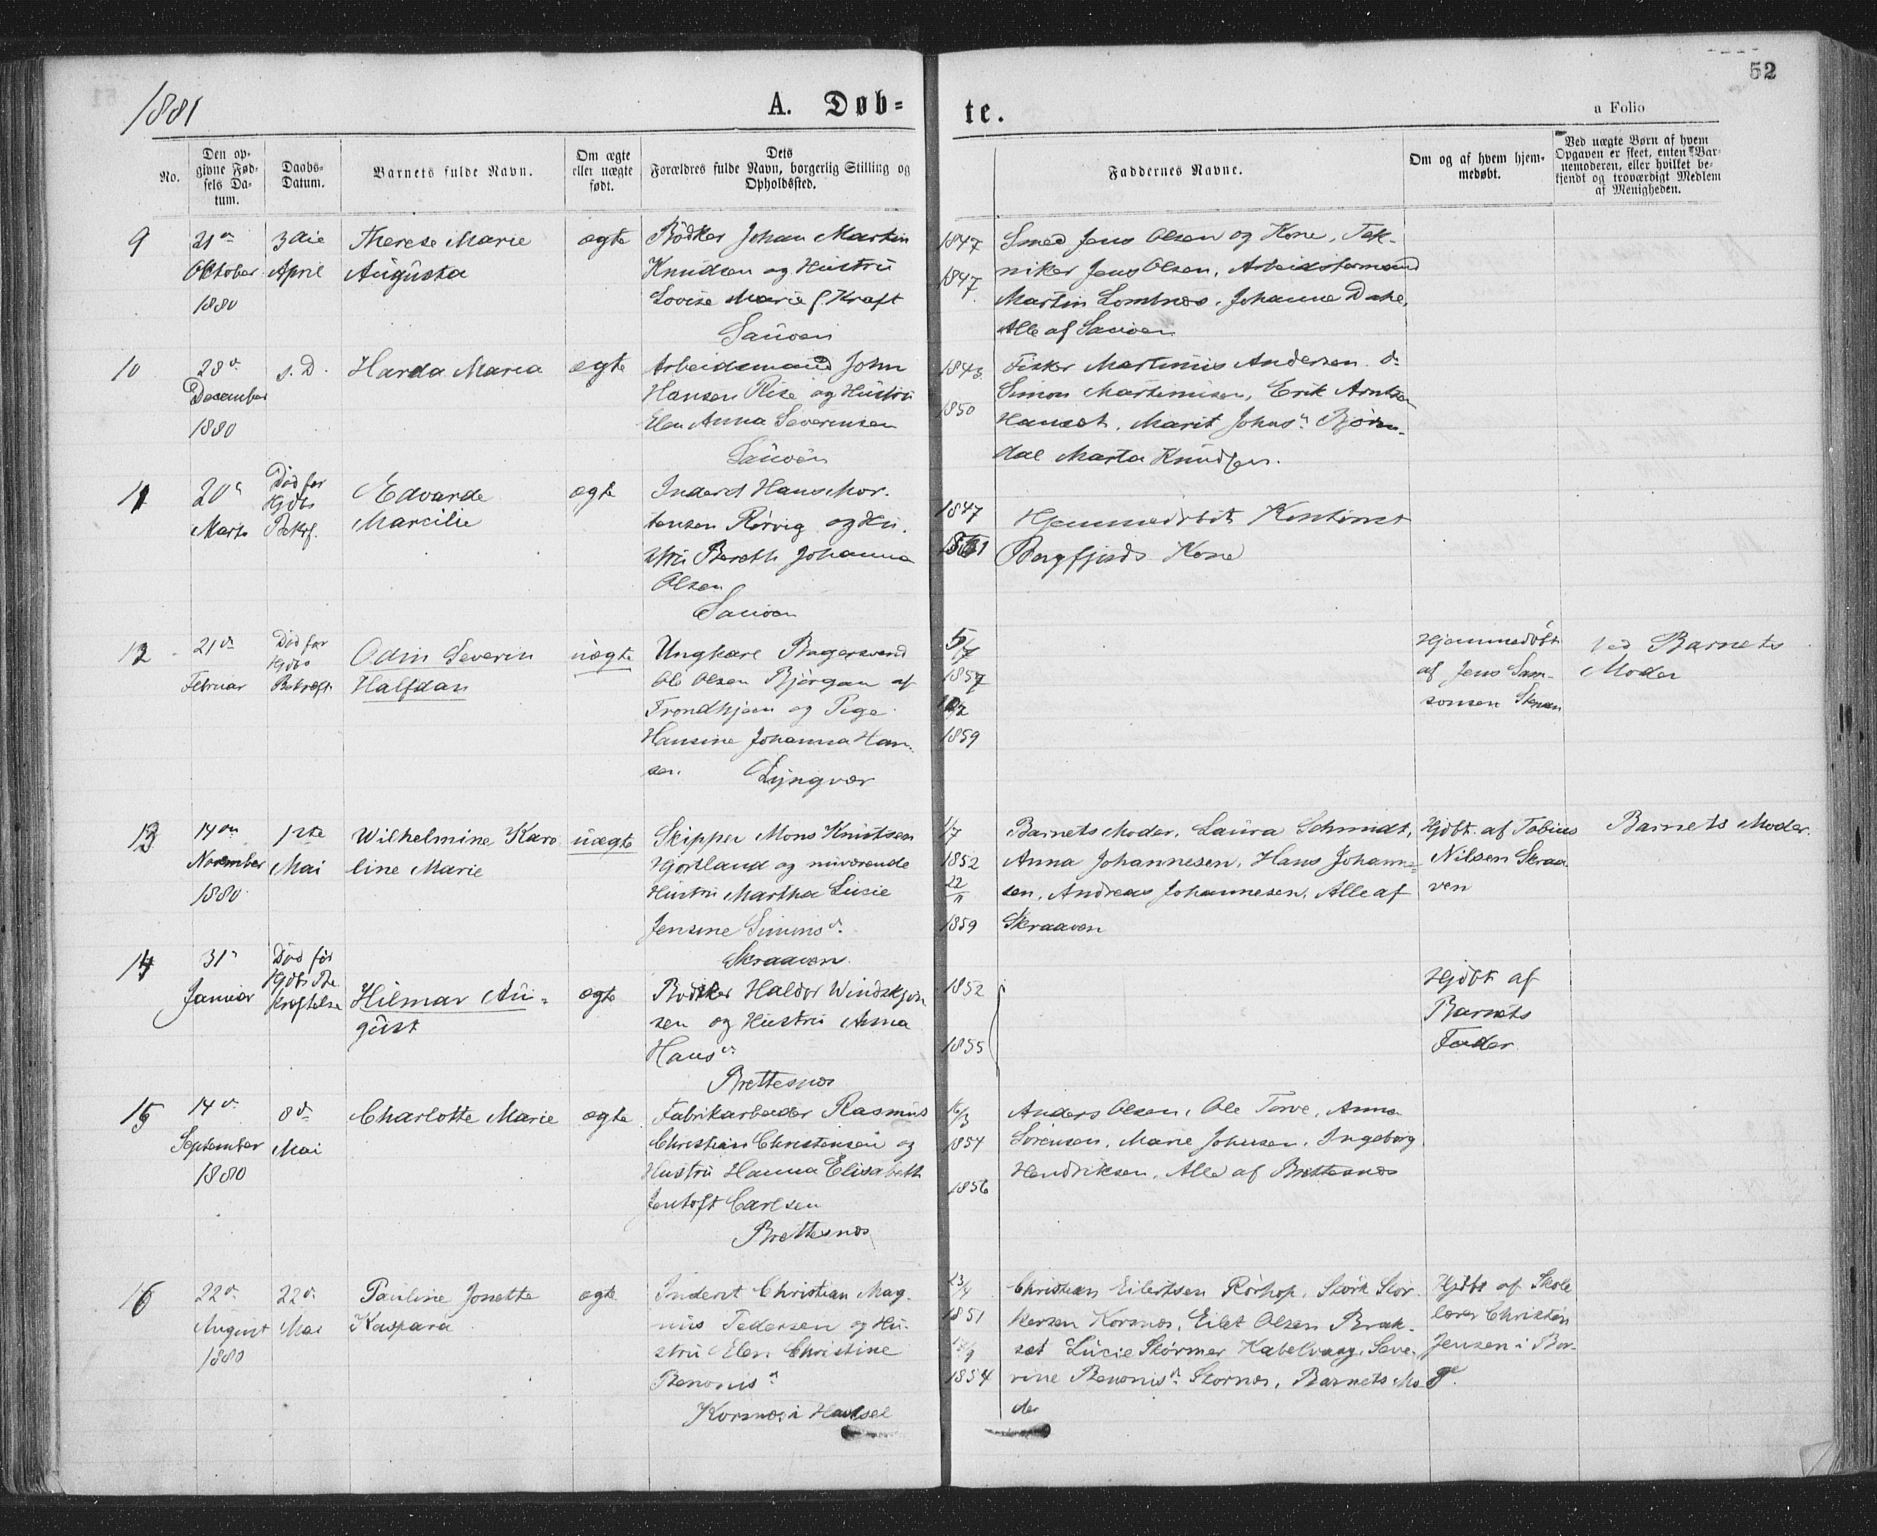 1881
A. Døb=
te.
52
a Folio
No.
Den op-
givne Fød-
sels Da-
tum.
Daabs-
Datum.
Barnets fulde Navn.
Om ægte
eller uægte
født.
Dets
Forældres fulde Navn, borgerlig Stilling og
Opholdssted.
Faddernes Navne.
Om og af hvem hjem-
medøbt.
Ved uægte Børn af hvem
Opgaven er skeet, enten Bar-
nemoderen, eller hvilket be-
kjendt og troværdigt Medlem
af Menigheden.
9
21de
Oktober
1880
3die
April
Therese Marie
Augusta
ægte
Bödker Johan Martin
Knudsen og Hustru
Lovise Marie f Kraft
1847
1847.
Smed Jens Olsen og Kone, Tek-
niker Jens Olsen, Arbeidsformand
Martin Lomtnæs, Johanne Dahe,
Alle af
10
28d
December
1880
s. D.
Harda Maria
ægte
Arbeidsmand John
Hansen Rise og Hustru
Elen Anna Severinsen
1843
1850
Fisker Martinus Andersen do
Simon Martinusen, Erik Arntsen
Hanset, Marit Johns d Bjørn-
dal Marta Knudsen.
11
20d
Marts
Död før
Hjdbs
Bekrf.
Edvarde
Marcilie
ægte
Inderst Hans Mor-
tensen Rørvig og Hu-
stru Bereth Johanna
Olsen
1847
Hjemmedøbt
Borgfjords Kone
12
21de
Februar
Död før
Hjdbs
Bekræft
Odin Severin
Halfdan
uægte
Ungkarl Bagersvend
Ole Olsen Björgan af
Trondhjem og Pige
Hansine Johanna Han-
sen. Lyngvær
5/7
1857
1859
Hjemmedöbt
af Jens Sam-
sonsen
ved Barnets
Moder
13
14de
November
1880
1ste
Mai
Wilhelmine Karo
line Marie
uægte
Skipper Mons Knutsen
Hjortland og nuværende
Hustru Martha Lucie
Jensine Simons d.
Skraaven
1/7
1852
22/11
1859
Barnets Moder, Laura Schmidt,
Anna Johannesen, Hans Johanne-
sen, Andreas Johannesen, Alle af
Skraaven
Hjdbt. af Tobias
Nilsen Skraa
ven
Barnets Moder.
14
31d
Januar
Död før
Hjdbs Be
kræftelse
Hilmar Au-
gust
ægte
Bødker Haldor
sen og Hustru Anna
Hans d.
Brettesnæs
1852
1855
Hjdbt af
Barnets
Fader.
15
14de
September
1880
8de
Mai
Charlotte Marie
ægte.
Fabrikarbeider Rasmus
Christian Christensen og
Hustru Hanna Elisabeth
Jentoft Carlsen
Brettesnæs
16/3
1854
1856
Anders Olsen, Ole Torve, Anna
Sørensen, Marie Johnsen, Ingeborg
Hendriksen, Alle af Brettesnæs
16
22de
August
1880
22de
Mai
Pauline Jonette
Kaspara
ægte
Inderst Christian Mag-
nus Pedersen og Hu-
stru Elen Christine
Benonis d
Korsnæs i Hadsel
23/4
1851
1854
Christian Eilertsen Rørhop, Størk Stor-
kersen Korsnæs, Eilet Olsen Brak-
set Lucie Størmer Kabelvaag, Seve-
rine Benonis d. Stornæs, Barnets Mo-
der
Hjdbt af Skole
lærer Christen
Jensen i Bor-
ge.